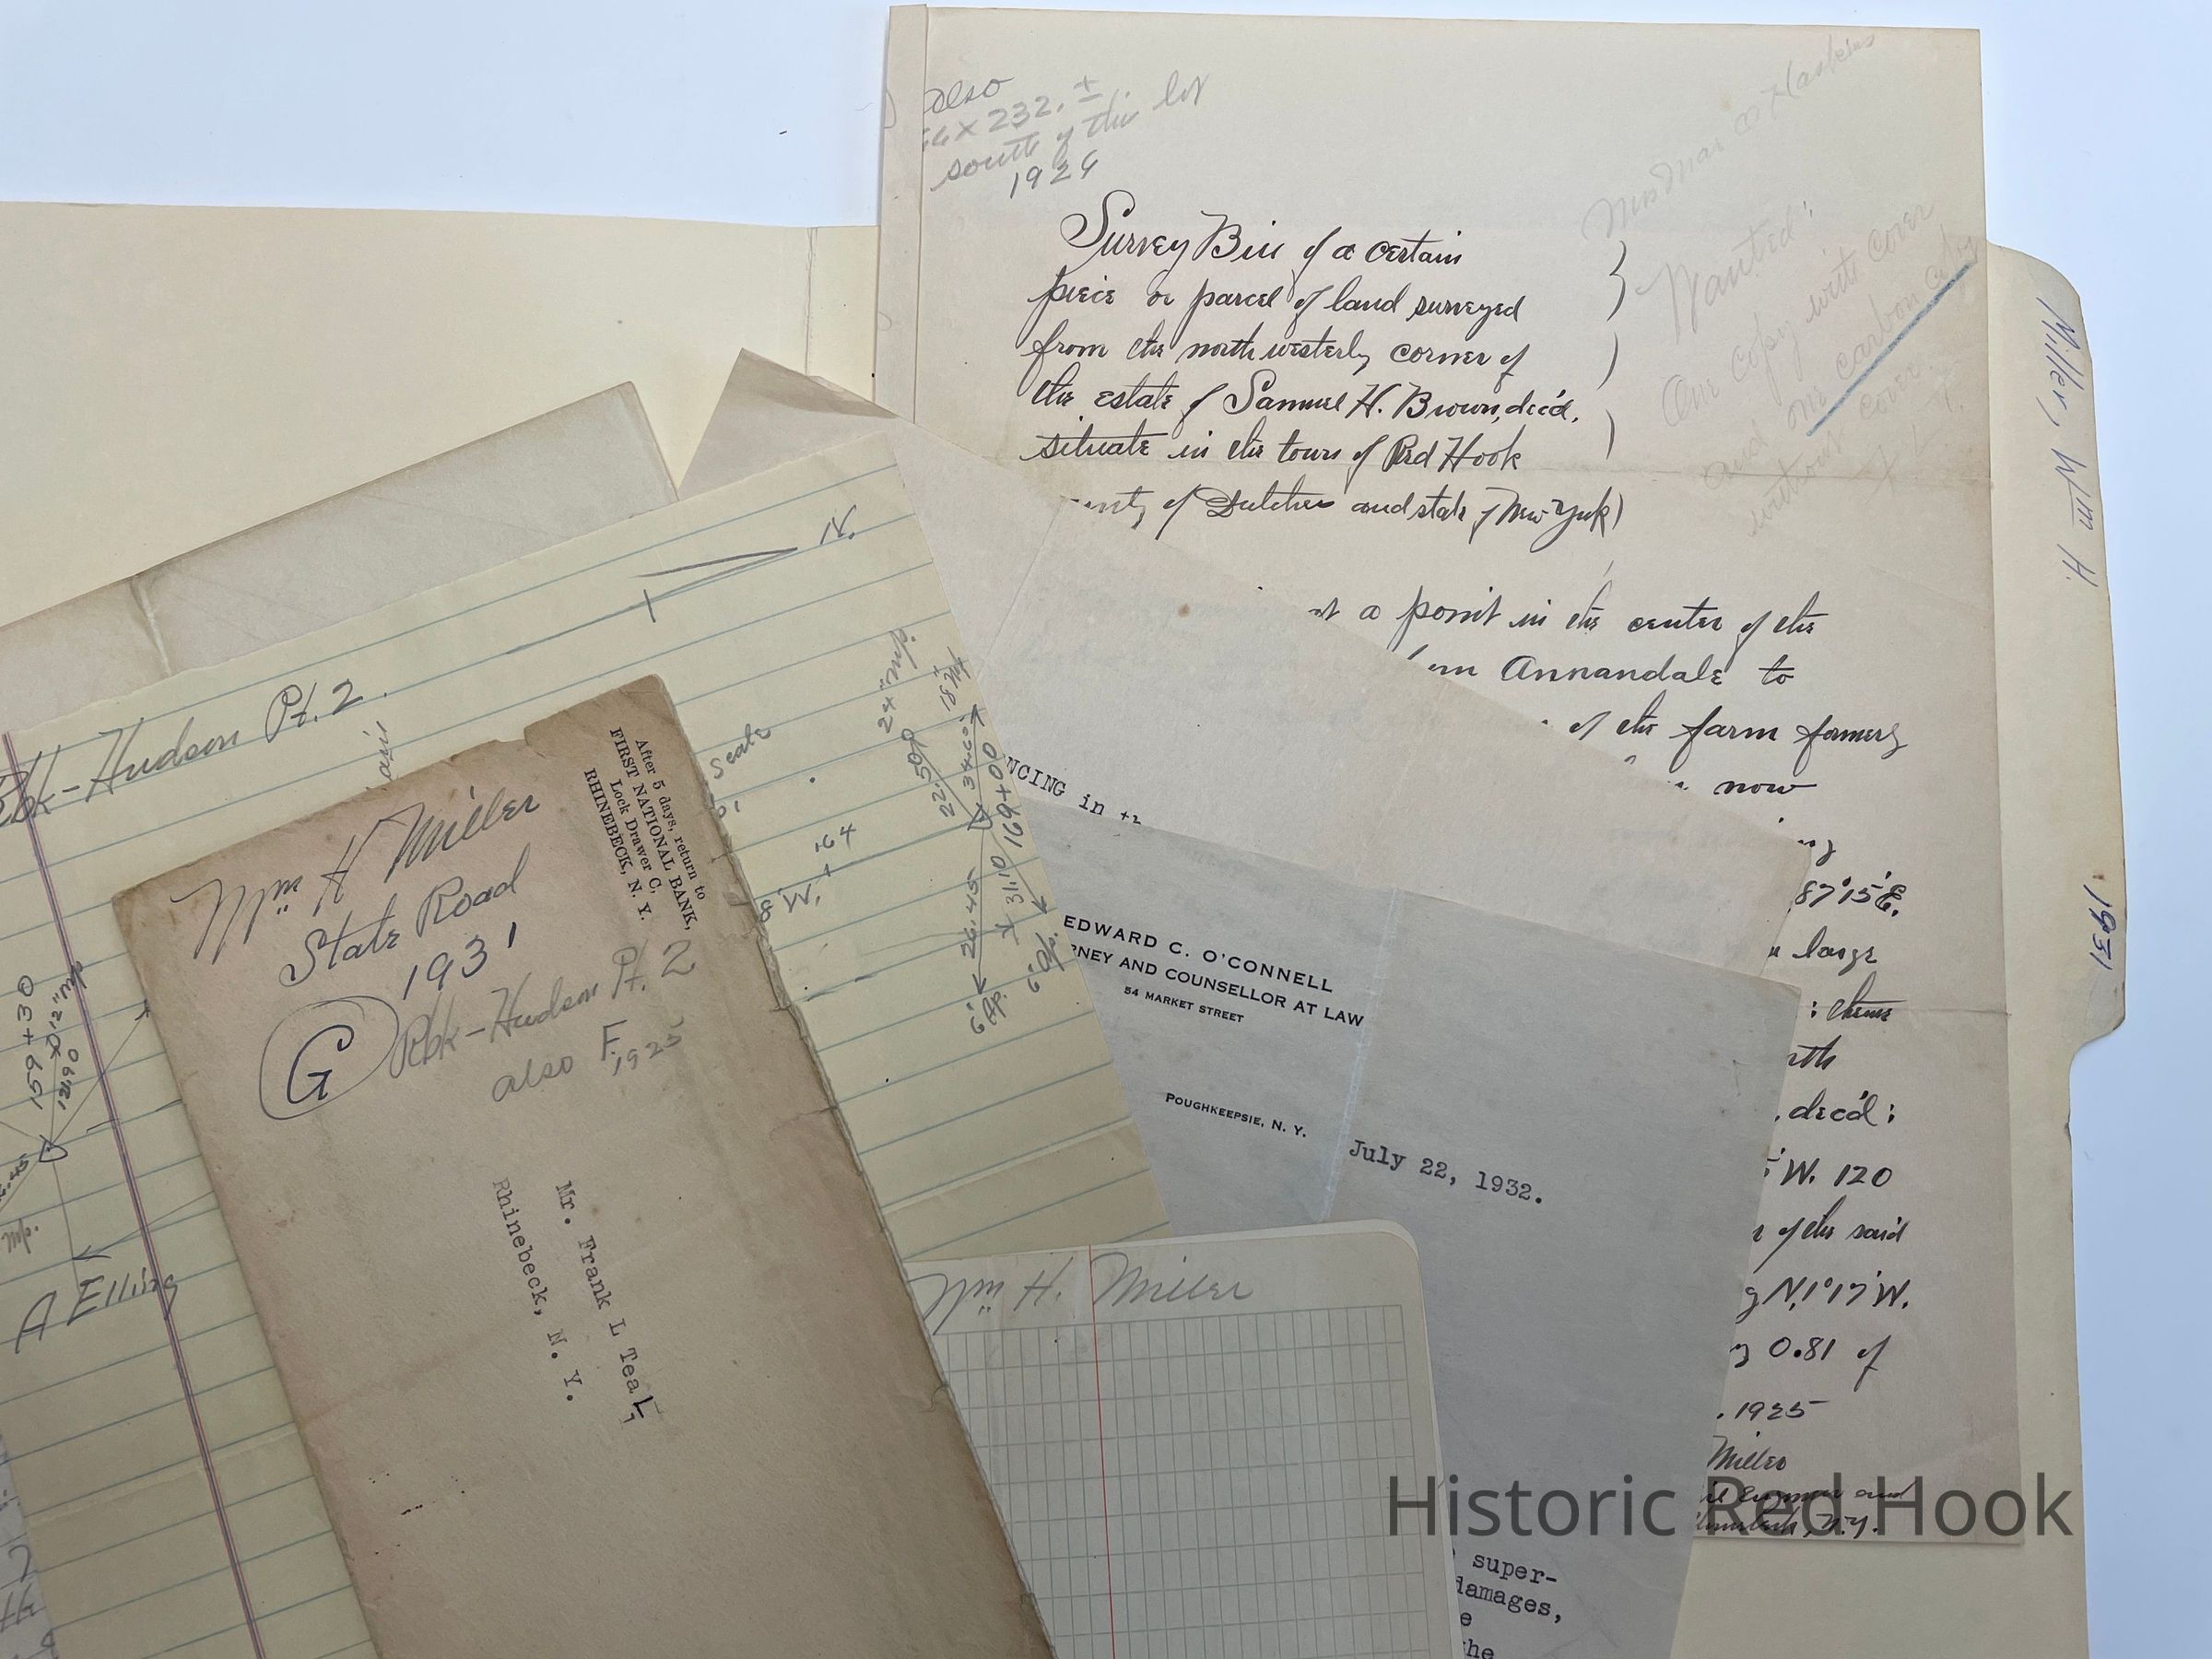 also
x 232. ±
south of this lot
1929
Survey Bill of a certain
piece or parcel of land surveyed
from the north westerly corner of
the estate of Samuel H. Brown, dec'd.
situate in the town of Red Hook
of Dutchess and state of New York
Wanted:
One copy with cover
and one carbon copy
without cover
at a point in the center of the
Annandale to
of the farm formerly
now
87°15'E.
large
: thence
, dec'd:
W. 120
of the said
N.1°17'W.
0.81 of
. 1925
Miller
Engineer and
N.Y.
Miller, Wm H.
1931
N.
Rbk-Hudson Pt. 2.
Scale
24" Mp.
18" Mp.
22.50
34.60
169+00
31.10
26.45
6' Ap.
6' Ap.
W. + .64
159+30
12" Mp.
12.60
Mp.
A Elling
After 5 days, return to
FIRST NATIONAL BANK,
Lock Drawer C,
RHINEBECK, N. Y.
Wm H Miller
State Road
1931
G
Rbk-Hudson Pt. 2
also F, 1925
Mr. Frank L Teal
Rhinebeck, N. Y.
NCING in
EDWARD C. O'CONNELL
RNEY AND COUNSELLOR AT LAW
54 MARKET STREET
POUGHKEEPSIE, N. Y.
July 22, 1932.
super-
damages,
Wm H. Miller
Historic Red Hook